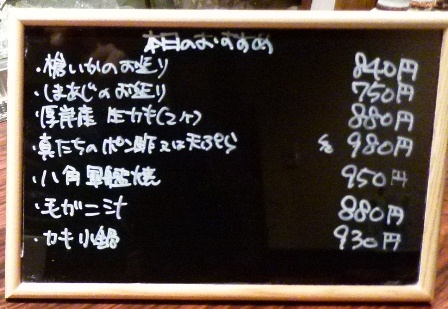 本日のおすすめ
・槍いかのお造り 840円
・しまあじのお造り 750円
・厚岸産 生カキ(2ヶ) 880円
・真たちのポン酢又は天ぷら 各980円
・八角軍艦焼 950円
・毛ガニ汁 880円
・カキ小鍋 930円